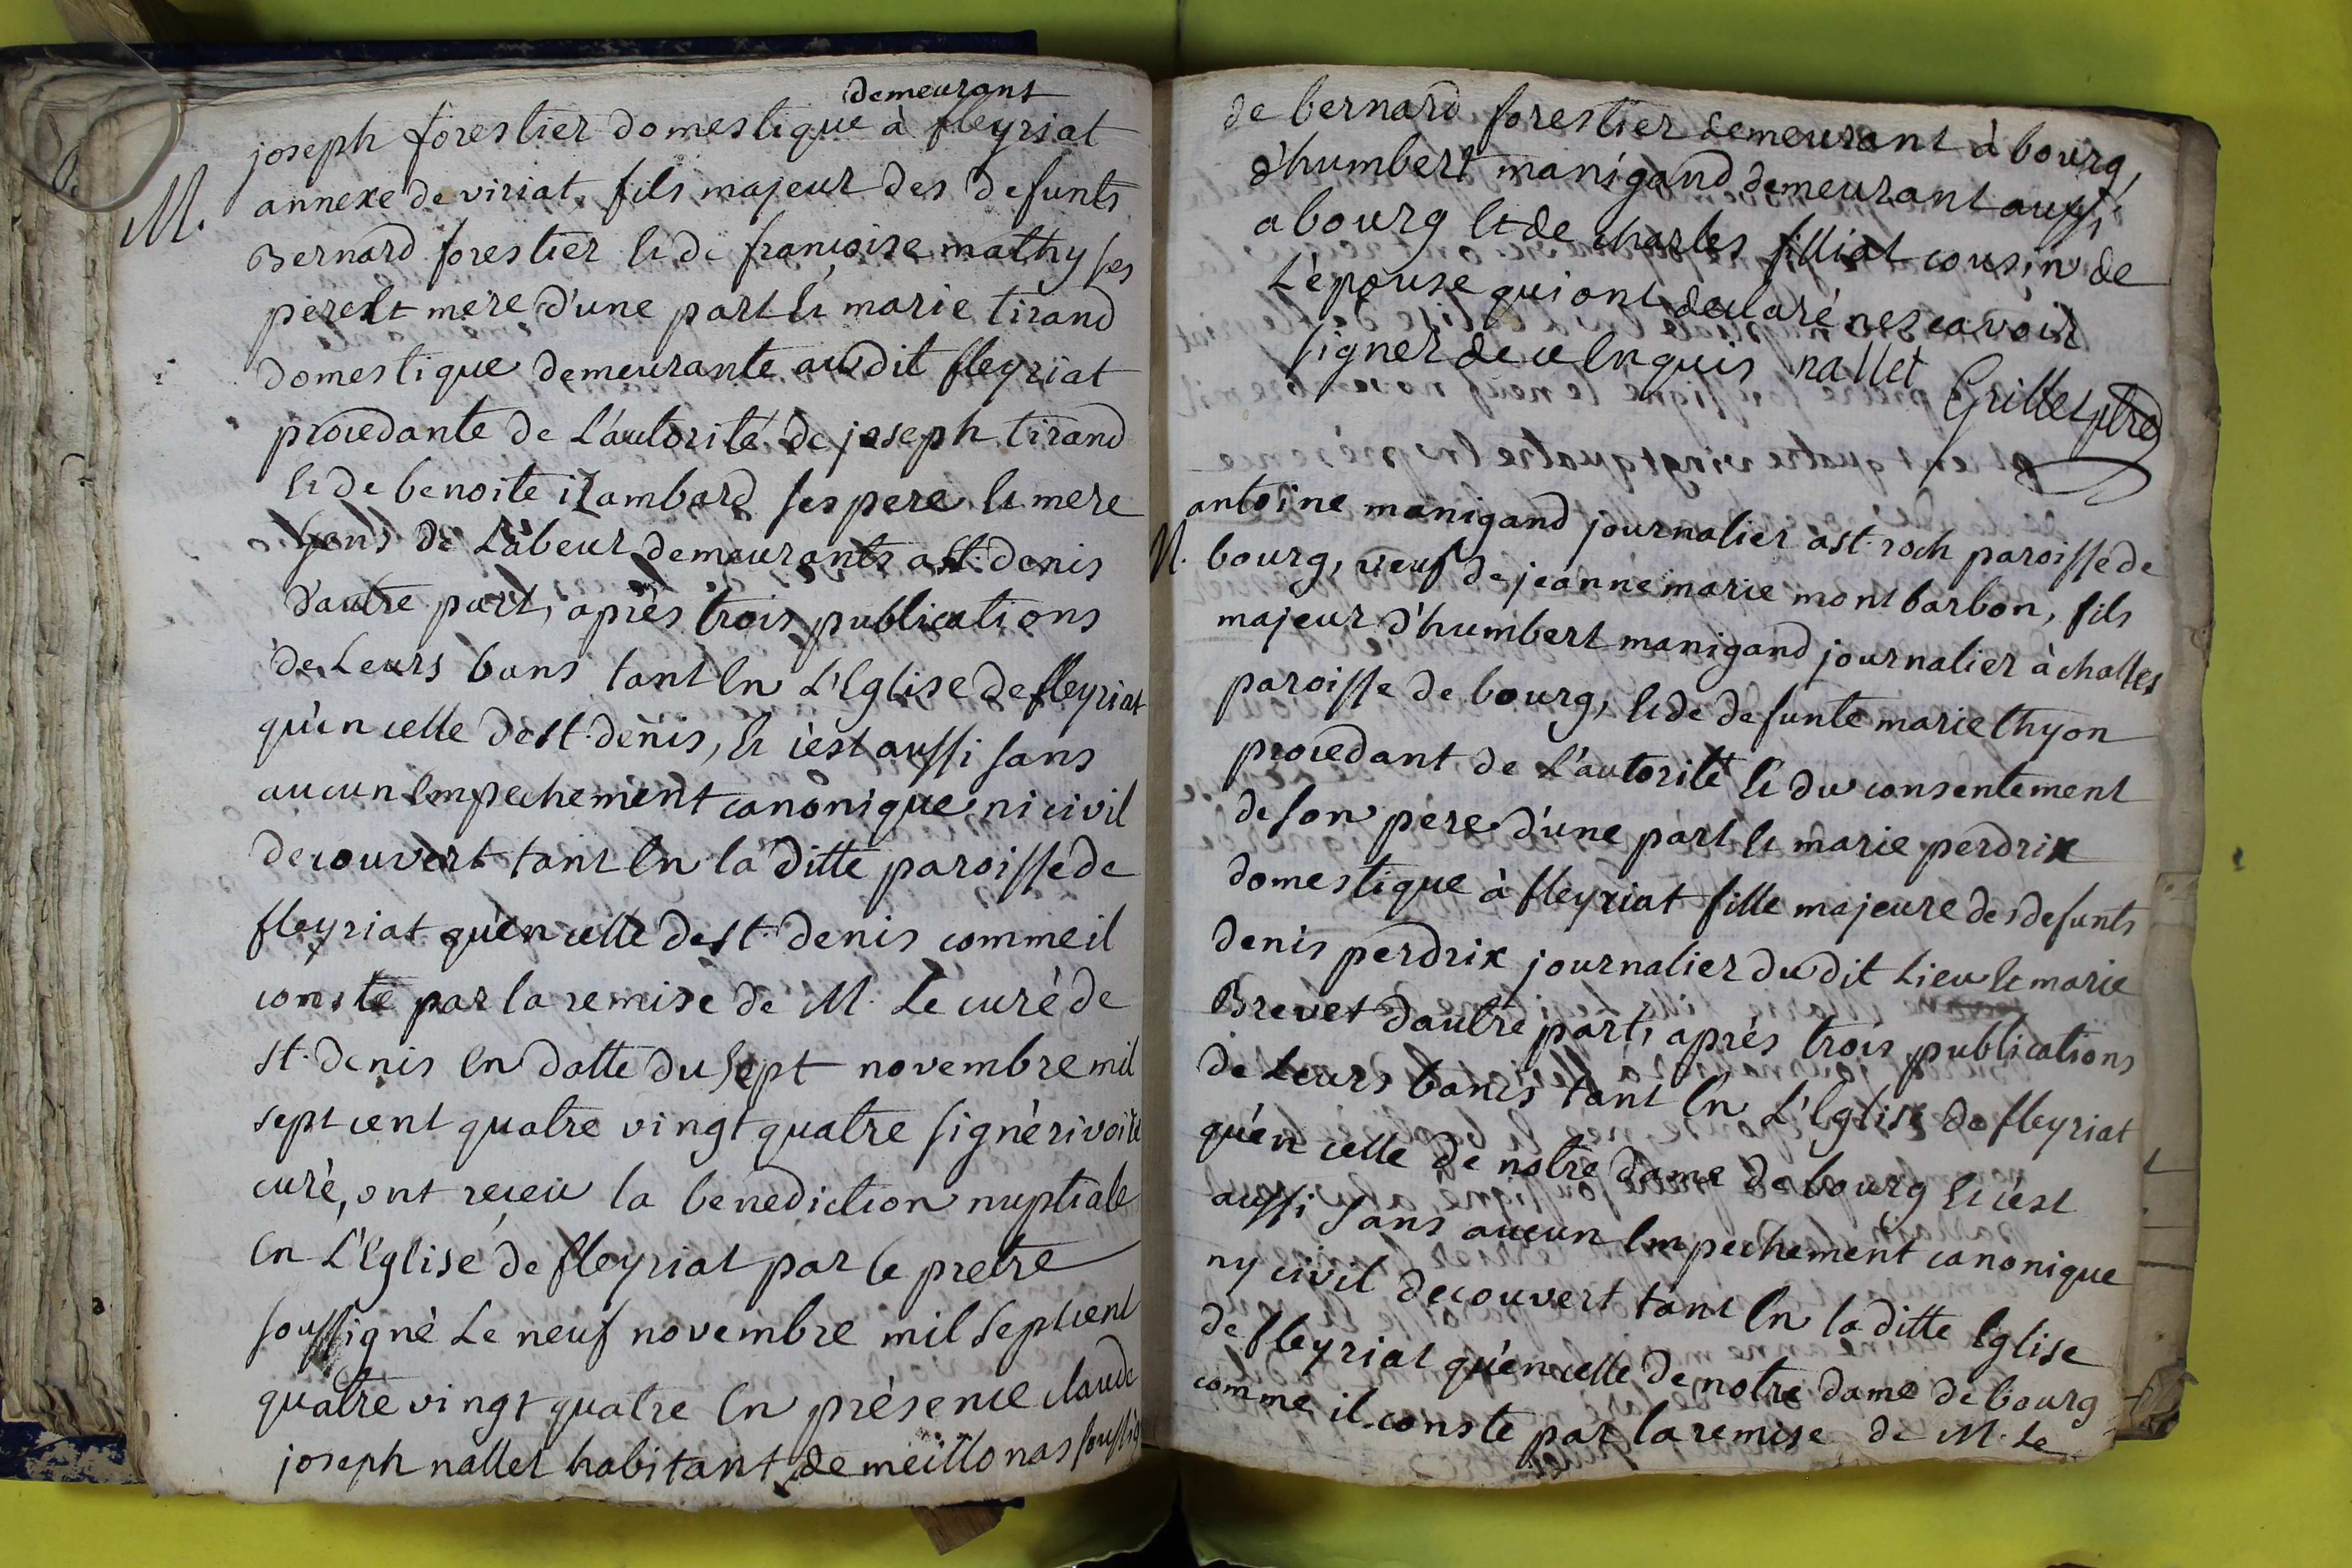 demeurant
joseph forestier domestique à fleyriat
M. annexe de viriat, fils majeur des defunts
Bernard forestier et de françoise mathy ses
pere et mere d'une part et marie tirand
domestique demeurante audit fleyriat
procedante de L'autorité de joseph tirand
et de benoite izambard ses pere et mere
gens de Labeur demeurants a st. denis
d'autre part, après trois publications
de Leurs bans tant en L'Eglise de fleyriat
qu'en celle de st. denis, et c'est aussi sans
aucun empechement canonique ni civil
decouvert tant en la ditte paroisse de
fleyriat qu'en celle de st. denis comme il
conste par la remise de M. Le curé de
st. denis en datte du sept novembre mil
sept cent quatre vingt quatre signé rivoire
curé, ont receu la benediction nuptiale
en L'Eglise de fleyriat par le pretre
soussigné Le neuf novembre mil sept cent
quatre vingt quatre en présence claude
joseph nallet habitant de meillonas soussig
de bernard forestier demeurant à bourg,
d'humbert manigand demeurant aussi
a bourg et de charles filliat cousin de
L'épouse qui ont declaré ne scavoir
signer de ce enquis nallet
Grillet ptre
antoine manigand journalier a st. roch paroisse de
M. bourg, veuf de jeanne marie montbarbon, fils
majeur d'humbert manigand journalier à challes
paroisse de bourg, et de defunte marie thyon
procedant de L'autorité et du consentement
de son père d'une part et marie perdrix
domestique à fleyriat fille majeure des defunts
denis perdrix journalier du dit Lieu et marie
Brevet d'autre part, aprés trois publications
de Leurs bancs tant en L'Eglise de fleyriat
qu'en celle de notre dame de bourg et c'est
aussi sans aucun empechement canonique
ny civil decouvert tant en la ditte Eglise
de fleyriat qu'en celle de notre dame de bourg
comme il conste par la remise de M. Le